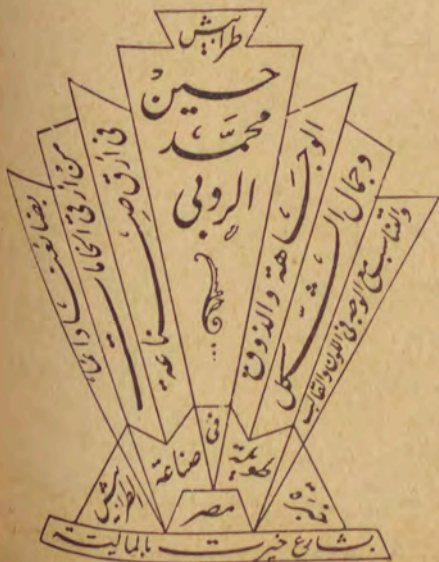 طرابيش
حسين
محمد
الروبي
الوجاهة والذوق
وجمال الشكل
والتناسب مع الوجه في اللون والقالب
في أرقى صناعة
من أرقى الخامات
خبرة طويلة في صناعة الطرابيش
مصر
بشارع خيرت بالمالية